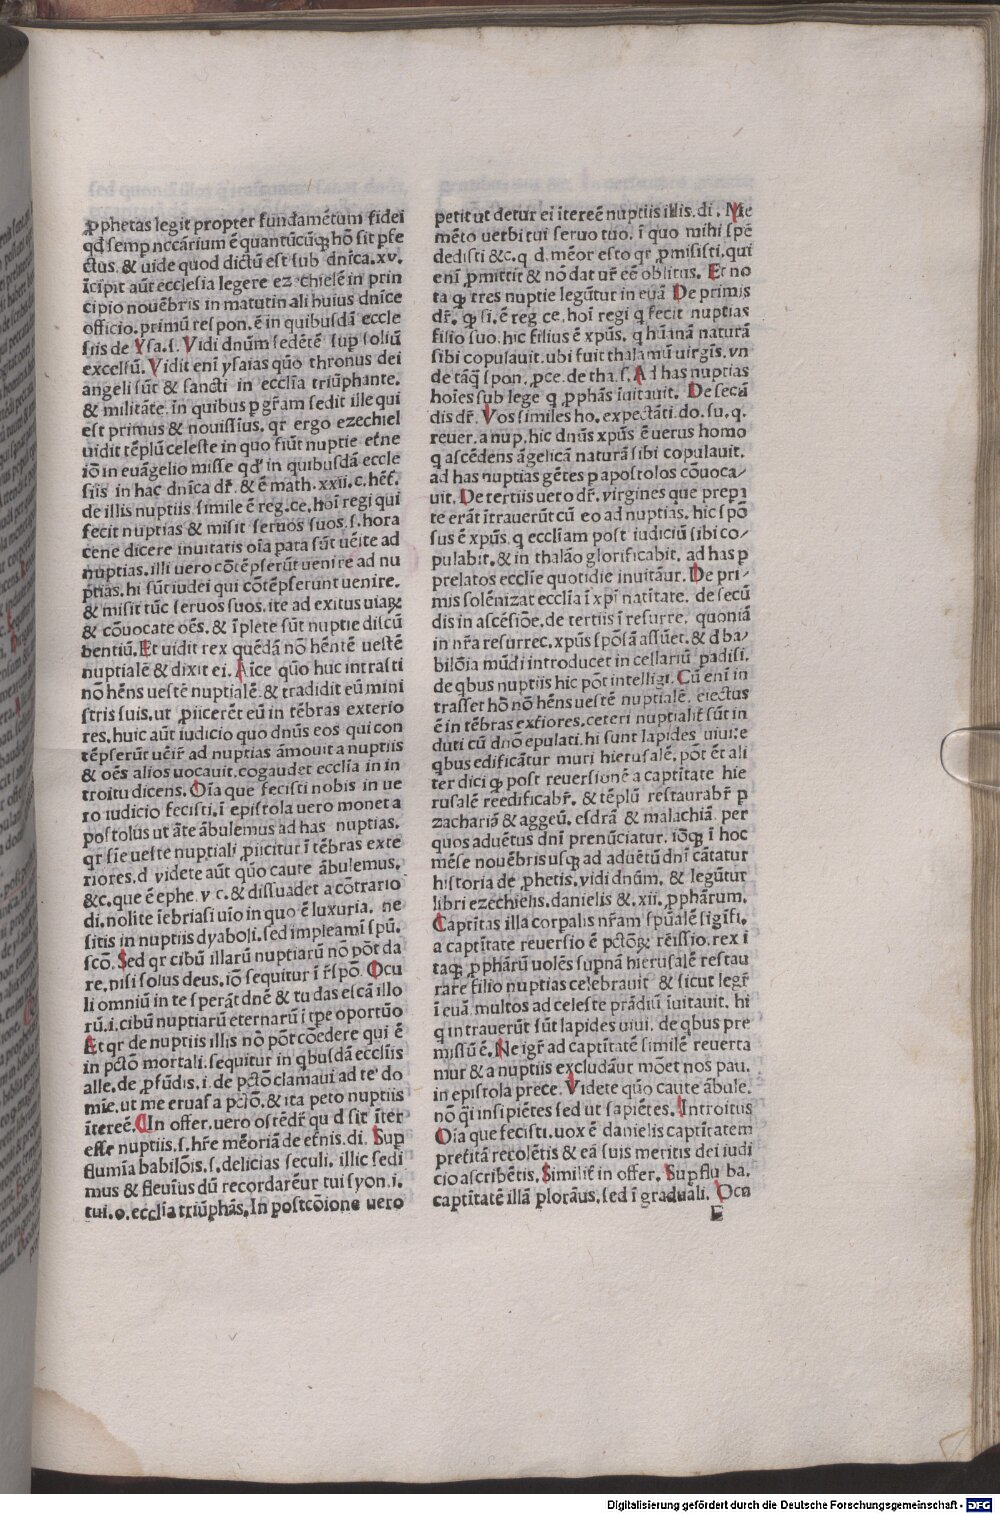 ꝓphetas legit propter fundamētum fidei
qd̄ semp nccārium ē quantūcūqꝫ hō sit pfe
ctus. & uide quod dictū est sub dn̄ica. xv.
īcipit aūt ecclesia legere ezechielē in prin
cipio nouēbris in matutinali huius dnīce
officio. primū respon. ē in quibusdā eccle
siis de Ysa. s. Vidi dnūm sedētē sup soliū
excelsū. Vidit enī ysaias quo thronus dei
angeli sūt & sancti in ecclīa triūphante.
& militāte. in quibus p gr̄am sedit ille qui
est primus & nouissius. qr̄ ergo ezechiel
uidit tēplū celeste in quo fiūt nuptie etne
iō in euāgelio misse qd' in quibusdā eccle
siis in hac dnīca dr̄. & ē math. xxii. c. het̄.
de illis nuptiis simile ē reg. ce. hoī regi qui
fecit nuptias & misit seruos suos. s. hora
cene dicere inuitatis oīa pata sūt uēite ad
nuptias. illi uero cōtēpserūt uenire ad nu
ptias. hi sūt iudei qui cōtēpserunt uenire.
& misit tūc seruos suos. ite ad exitus uiaꝝ
& cōuocate oēs. & īplete sūt nuptie discū
bentiū. Et uidit rex quēdā nō hēntē uestē
nuptialē & dixit ei. Aīce quō huc intrasti
nō hēns uestē nuptialē. & tradidit eū mini
stris suis. ut ꝓiicerēt eū in tēbras exterio
res. huic aūt iudicio quo dnūs eos qui con
tēpserūt uēir̄ ad nuptias āmouit a nuptiis
& oēs alios uocauit. cogaudet ecclīa in in
troitu dicens. Oīa que fecisti nobis in ue
ro iudicio fecisti. ī epistola uero monet a
postolus ut āte ābulemus ad has nuptias.
qr̄ sīe ueste nuptiali ꝓiicitur ī tēbras exte
riores. d videte aūt quō caute ābulemus.
&c. que ē ephe. v c. & dissuadet a cōtrario
di. nolite īebriasi uīo in quo ē luxuria. ne
sitis in nuptiis dyaboli. sed impleamī spū.
scō. Sed qr cibū illarū nuptiarū nō pōt da
re. nisi solus deus. iō sequitur ī r̄spō. Ocu
li omniū in te sperāt dnē & tu das escā illo
rū. i. cibū nuptiarū eternarū ī tpe oportūo
Et qr de nuptiis illis nō pōt cōedere qui ē
in pctō mortali. sequitur in qbusdā ecclīis
alle. de ꝓfūdis. i. de pctō clamaui ad te do
mie. ut me eruas a pctō. & ita peto nuptiis
īterēē. In offer. uero ostēdr̄ qu d sit īter
esse nuptiis. s. hr̄e mēoriā de etnis. di. Sup
flumīa babilōis. s. delicias seculi. illic sedi
mus & fleuīus dū recordarēur tui syon. i.
tui. o. ecclīa triūphās. In postcōione uero
petit ut detur ei īterēē nuptiis illis. di. Me
mēto uerbi tui seruo tuo. ī quo mihi spē
dedisti &c. q d. mēor esto qr ꝓmisisti. qui
enī ꝓmittit & nō dat ur̄ ēē oblitus. Et no
ta ꝙ tres nuptie legūtur in euā De primis
dr̄. ꝙ si. ē reg ce. hoī regi q fecit nuptias
filio suo. hic filius ē xpūs. q hūanā naturā
sibi copulauit. ubi fuit thalamū uirgīs. vn
de tāq̄ spon. pce. de tha. s. Ad has nuptias
hoīes sub lege q ꝓphās īuitauit. De secū
dis dr̄. Vos similes ho. expectāti. do. su. q.
reuer. a nup. hic dnūs xpūs ē uerus homo
q ascēdens āgelicā naturā sibi copulauit.
ad has nuptias gētes p apostolos cōuoca/
uit. De tertiis uero dr̄. virgines que prepa
te erāt ītrauerūt cū eo ad nuptias. hic spō
sus ē xpūs. q ecclīam post iudiciū sibi co/
pulabit. & in thalāo glorificabit. ad has p
prelatos ecclīe quotidie inuitāur. De pri/
mis solēnizat ecclīa ī xpī natītate. de secū
dis in ascēsiōe. de tertiis ī resurre. quoniā
in nr̄a resurrec. xpūs spōsā assūet. & d ba/
bilōīa mūdi introducet in cellariū padisi.
de qbus nuptiis hic pōt intelligi. Cū enī in
trasset hō nō hēns uestē nuptialē. eiectus
ē in tēbras exfiores. ceteri nuptialit̄ sūt in
ducti cū dnō epulati. hi sunt lapides uiui. e
qbus edificātur muri hierusalē. pōt ēt ali
ter dici ꝙ post reuersionē a captītate hie
rusalē reedificabr̄. & tēplū restaurabr̄ p
zachariā & aggeū. esdrā & malachiā. per
quos aduētus dnī prenūciatur. iōqꝫ ī hoc
mēse nouēbris usqꝫ ad aduētū dnī cātatur
historia de ꝓphetis. vidi dnūm. & legūtur
libri ezechielis. danielis &. xii. ꝓphārum.
Captītas illa corpalis nr̄am spūalē sigīfi.
a captītate reuersio ē pctōꝝ rēissio. rex i
taqꝫ ꝓphārū uolēs supnā hierusalē restau
rare filio nuptias celebrauit & sicut legr̄
ī euā. multos ad celeste prādiū īuitauit. hi
q intrauerūt sūt lapides uiui. de qbus pre
missū ē. Ne igr̄ ad captītatē similē reuerta
mur & a nuptiis excludāur mōet nos pau.
in epistola prece. Videte quō caute ābule.
nō q̄i insipiētes sed ut sapiētes. Introitus
Oīa que fecisti. uox ē danielis captītatem
preītā recolētis & eā suis meritis dei iudi
cio ascribētis. Similit̄ in offer. Sup flu ba.
captītatē illā plorāus. sed ī graduali. Ocu
E
Digitalisierung gefördert durch die Deutsche Forschungsgemeinschaft - DFG